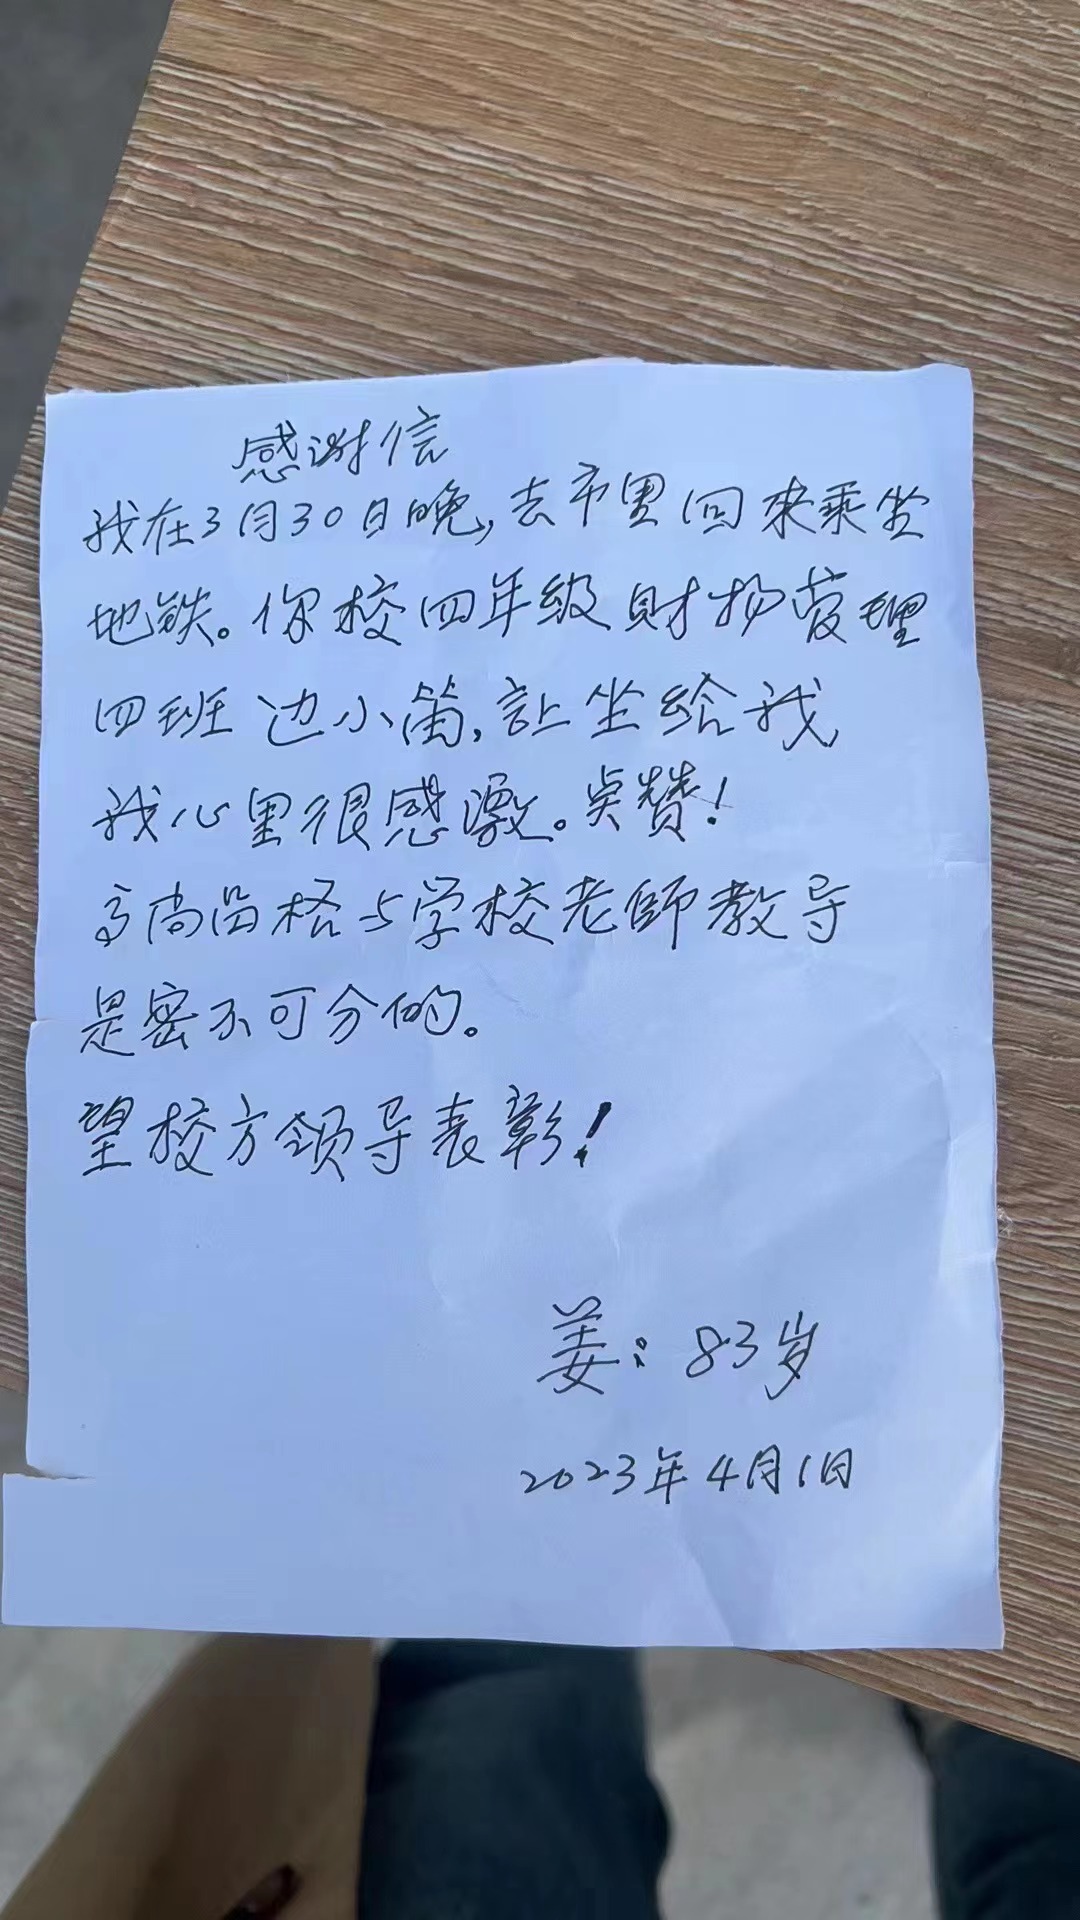 感谢信
我在3月30日晚,去市里回来乘坐
地铁。你校四年级财物管理
四班边小笛,让坐给我
我心里很感激。点赞!
高尚品格与学校老师教导
是密不可分的。
望校方领导表彰!
姜:83岁
2023年4月1日